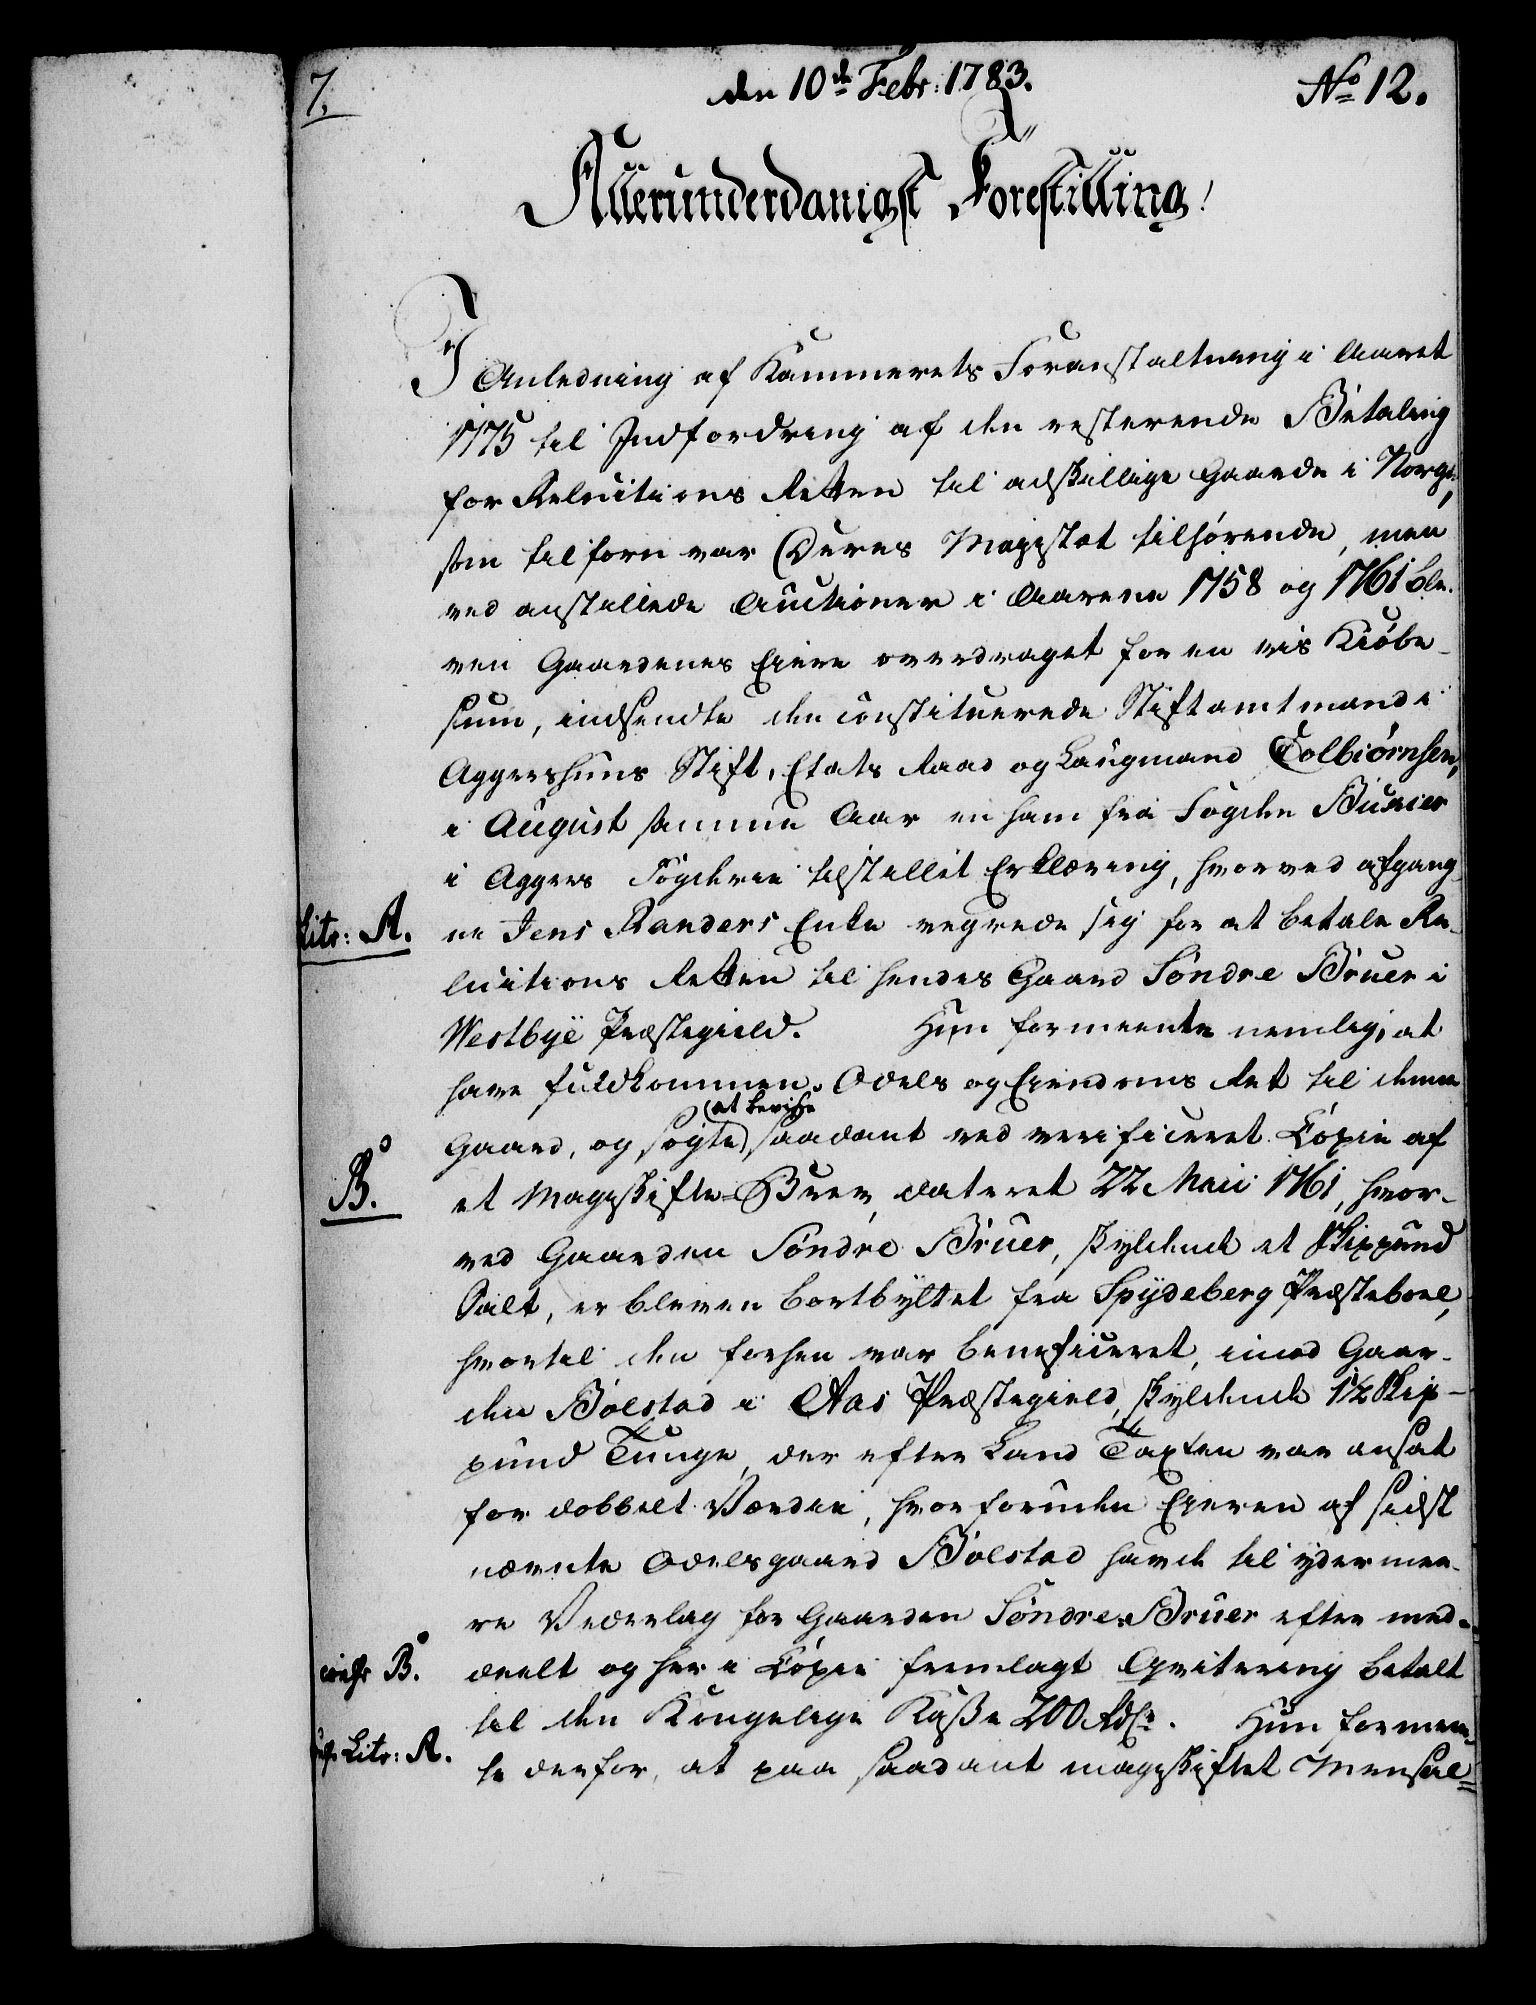 7.
den 10de Febr: 1783.
No 12.
Allerunderdanigst Forestilling!
I Anledning af Kammerets Foranstaltning i Aaret
1775 til Indfordring af den resterende Betaling
for Reluitions Retten til adskillige Gaarde i Norge,
som tilforn var Deres Majestæt tilhørende, men
ved anstillede Auctioner i Aarene 1758 og 1761 ble-
ven Gaardenes Eiere overdraget for en vis Kiøbe-
sum, indsendte den constituerede Stiftamtmand i
Aggershuus Stift, Etats Raad og Laugmand Colbiørnsen,
i August samme Aar en ham fra Fogden Burier
i Aggers Fogderie tilstillet Erklæring, hvorved afgang-
Litr: A.
ne Jens Randers Enke vegrede sig for at betale Re-
luitions Retten til hendes Gaard Søndre Bruer i
Westbye Præstegield. Hun formeente nemlig, at
have fuldkommen Odels og Eiendoms Ret til denne
(at bevise
Gaard, og søgte) saadant ved verificeret Copie af
B.
et Mageskifte-Brev, dateret 22 Maii 1761, hvor-
ved Gaarden Søndre Bruer, skyldende et Skippund
Salt, er bleven bortbyttet fra Spydeberg Præsteboel,
hvortil den forhen var beneficeret, imod Gaar-
den Bølstad i Aas Præstegield, skyldende 1½ Skip-
pund Tunge, der efter Land Taxten var ansat
for dobbelt Værdie, hvorforuden Eieren af sidst
nævnte Odelsgaard Bølstad havde til ydermee-
re Vederlag for Gaarden Søndre Bruer efter med-
confr B.
deelt og her i Copie fremlagt Qvitering betalt
til den Kongelige Kasse 200 Rdlr. Hun formeen-
confr Litr: A.
te derfor, at paa saadant mageskiftet Mensal-